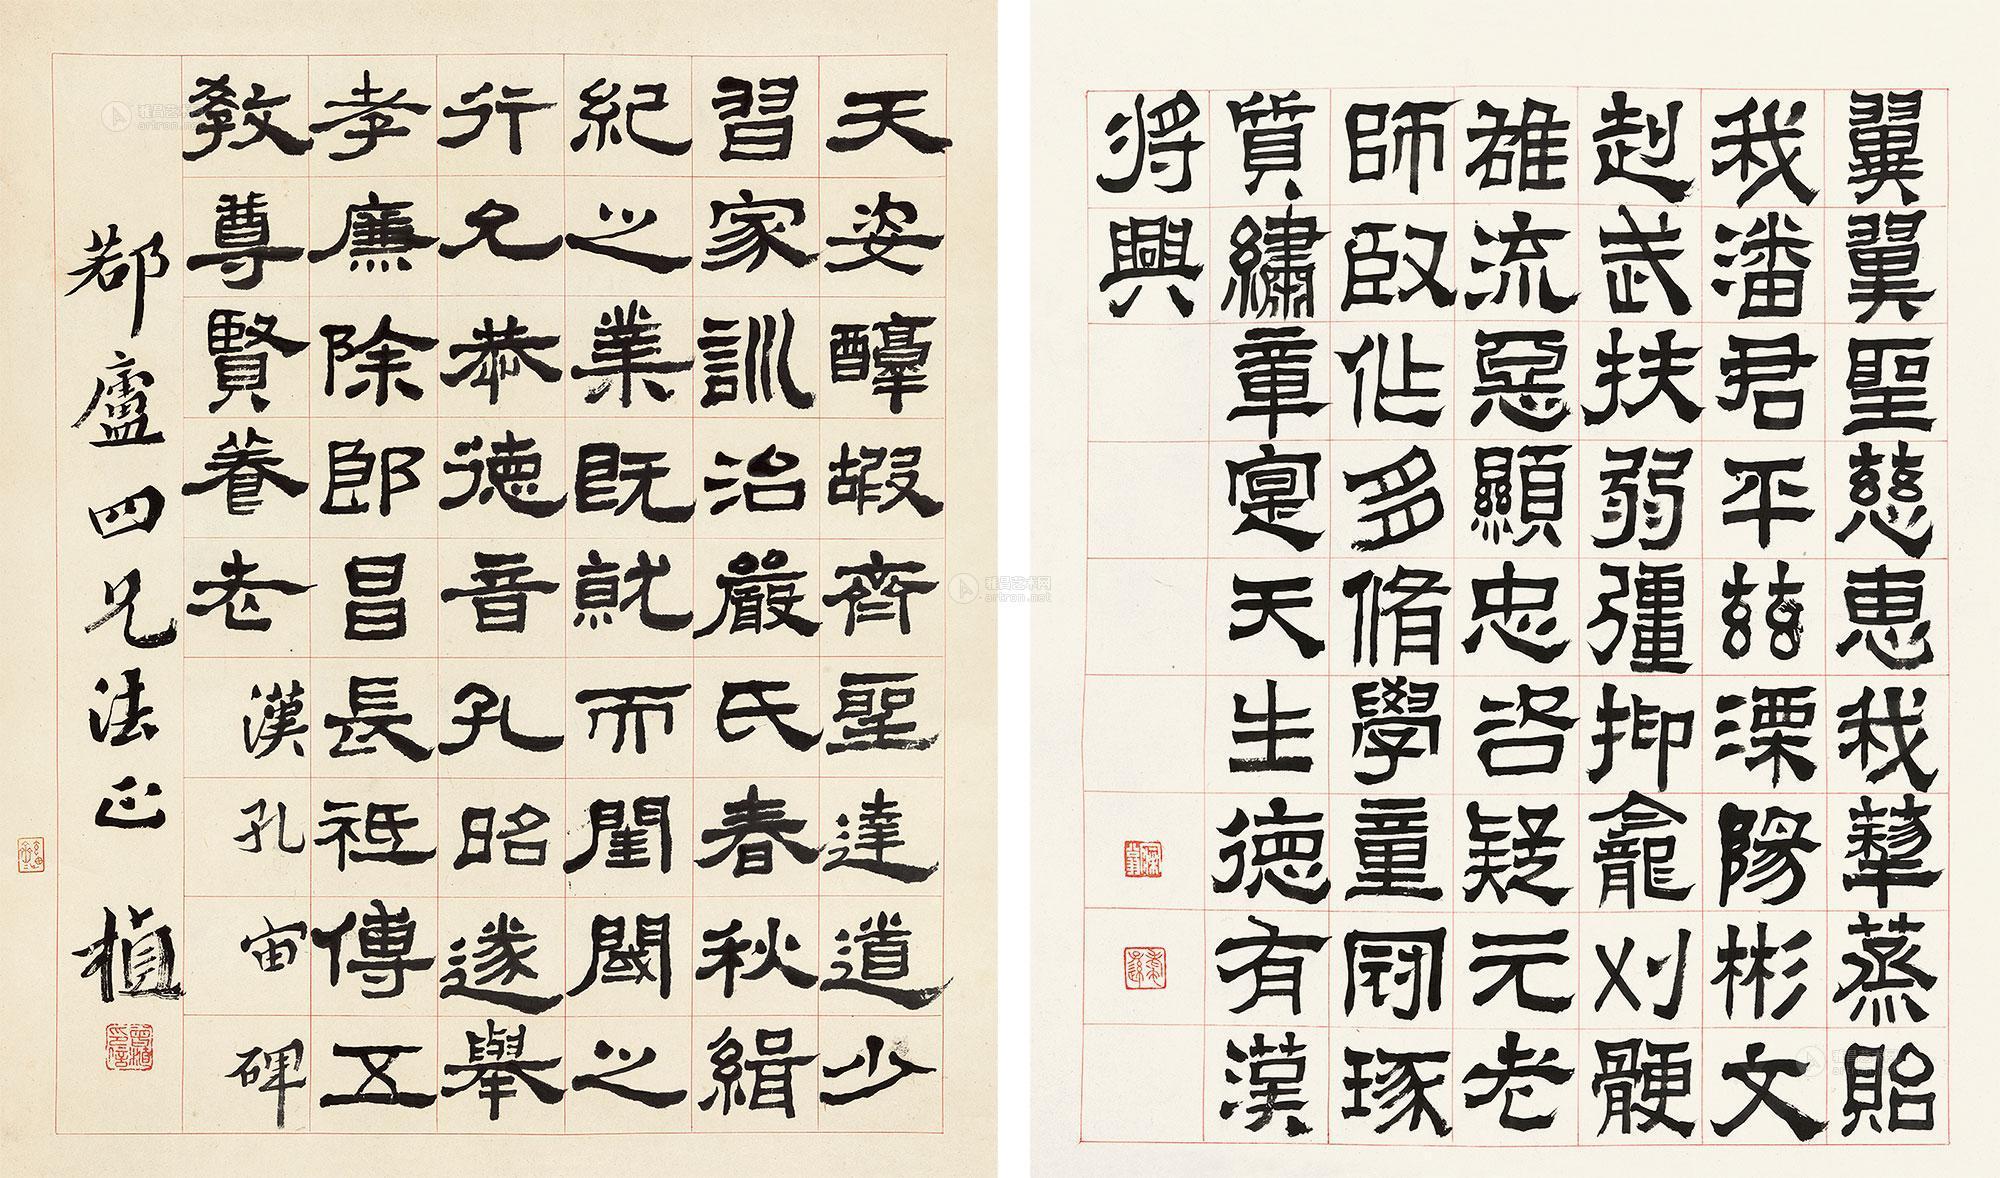 翼翼聖慈惠我蔾蒸貽
我潘君平兹溧陽彬文
赳武扶弱彊抑龕刈骾
雄流惡顯忠咨疑元老
師臤作多脩學童冠琢
質繡章寔天生德有漢
將興
天姿醇嘏齊聖達道少
習家訓治嚴氏春秋緝
紀之業既就而閨閾之
行允恭德音孔昭遂舉
孝廉除郎昌長祗傅五
教尊賢養老 漢孔宙碑
鄀廬四兄法正 植
雅昌艺术网
artron.net